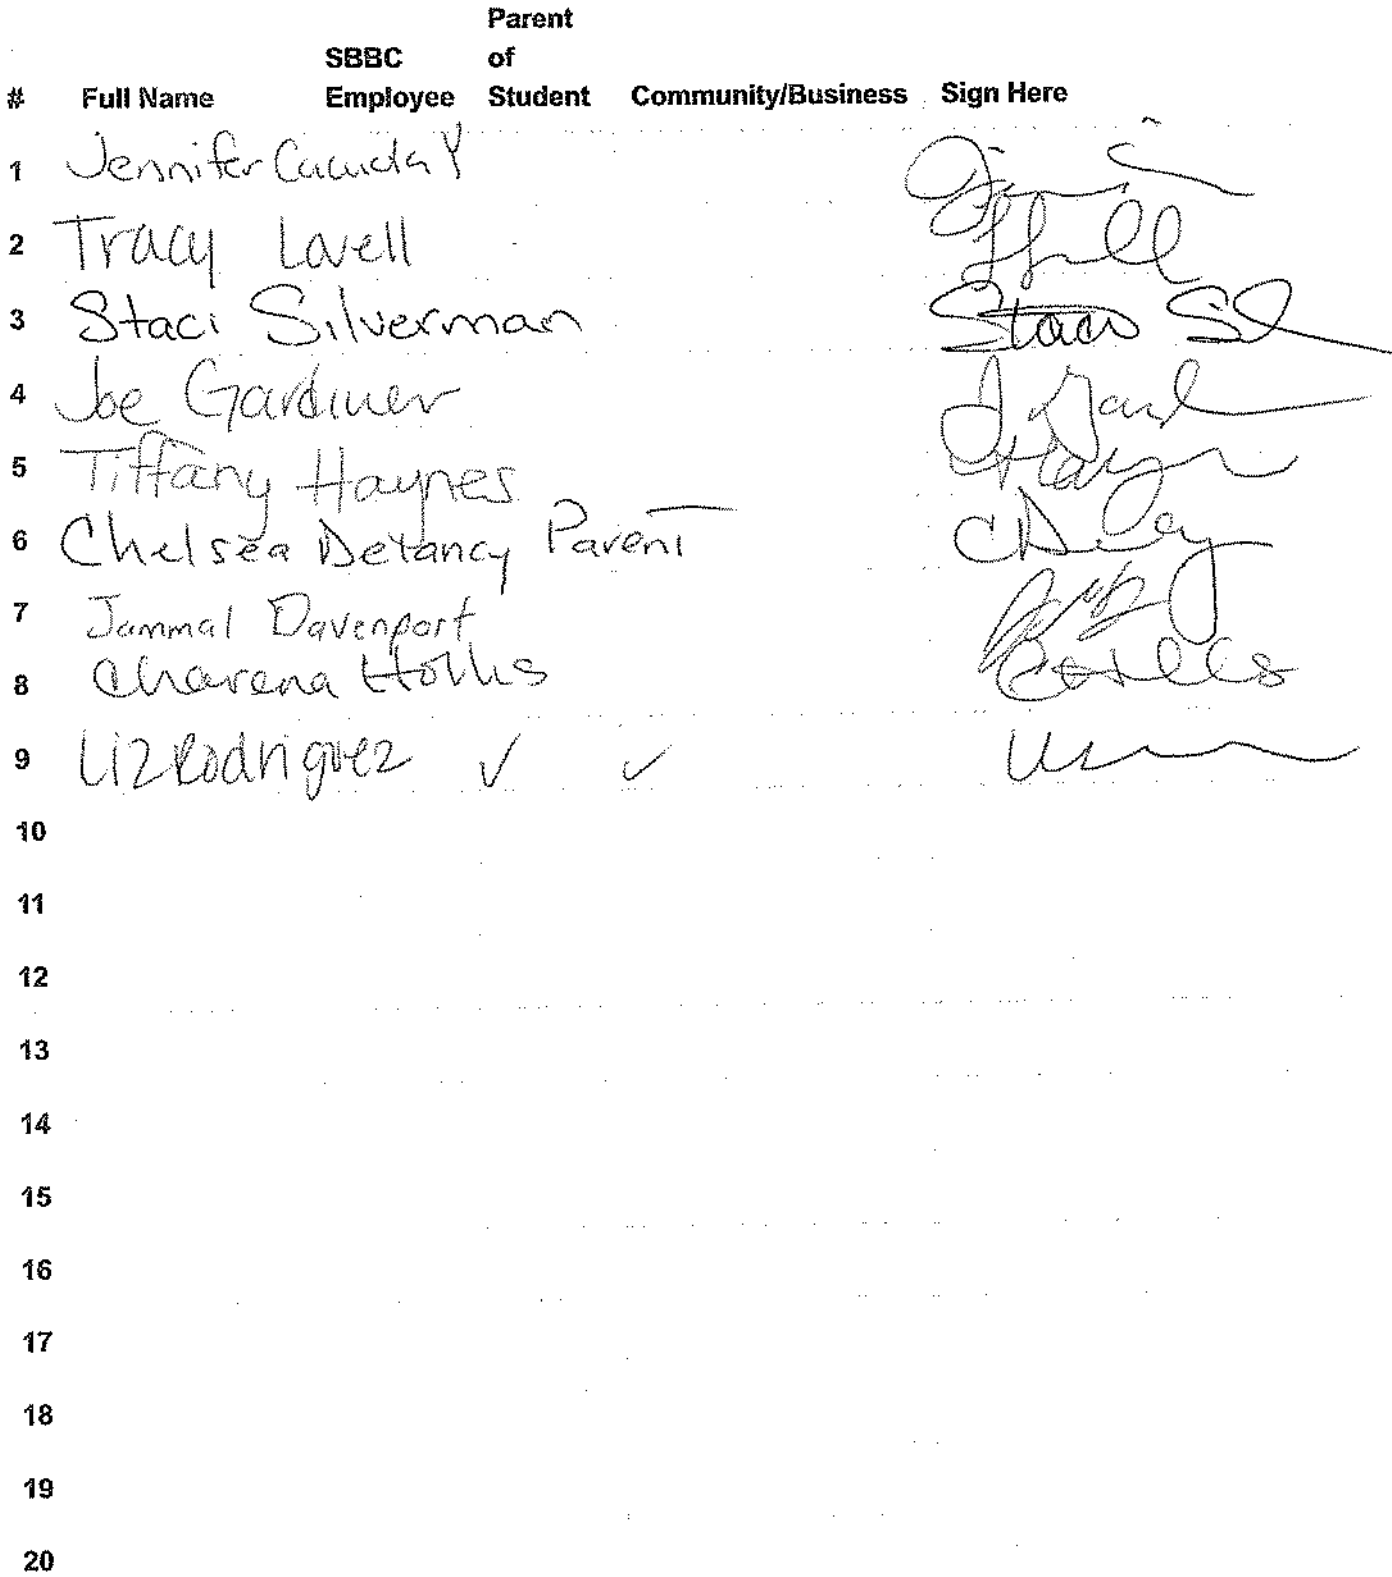 # Full Name SBBC Employee Parent of Student Community/Business Sign Here
1 Jennifer Y
2 Tracy Lovell
3 Staci Silverman Staci
4 Joe Gardiner
5 Tiffany Haynes
6 Chelsea Delancy Parent
7 Jammal Davenport
8 Charena Hollis
9 Liz Rodriguez ✓ ✓
10
11
12
13
14
15
16
17
18
19
20